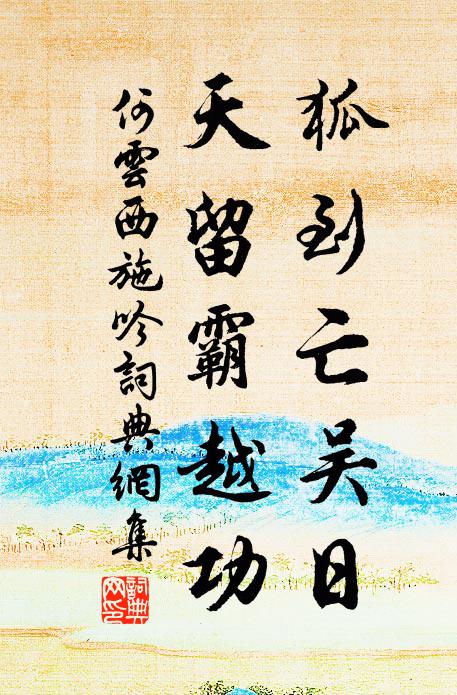 狐到亡吴日
天留霸越功
何雲西施吟詞典網集
詞典網印